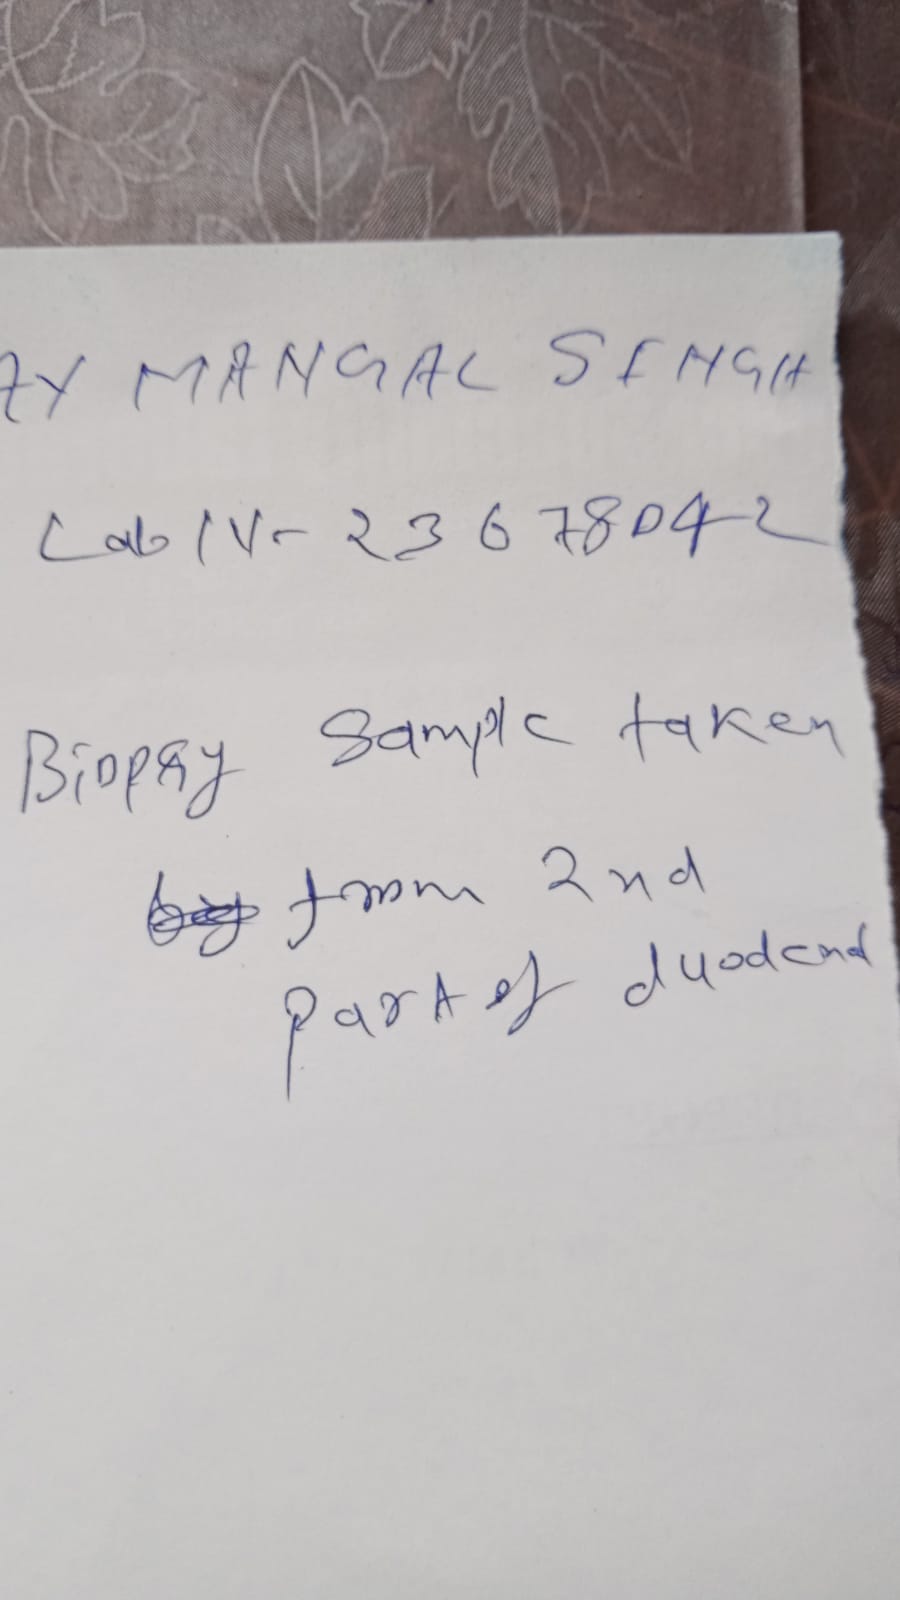 AY MANGAL SINGH
Lab IV- 23678042
Biopsy Sample taken
from 2nd
part of duodend